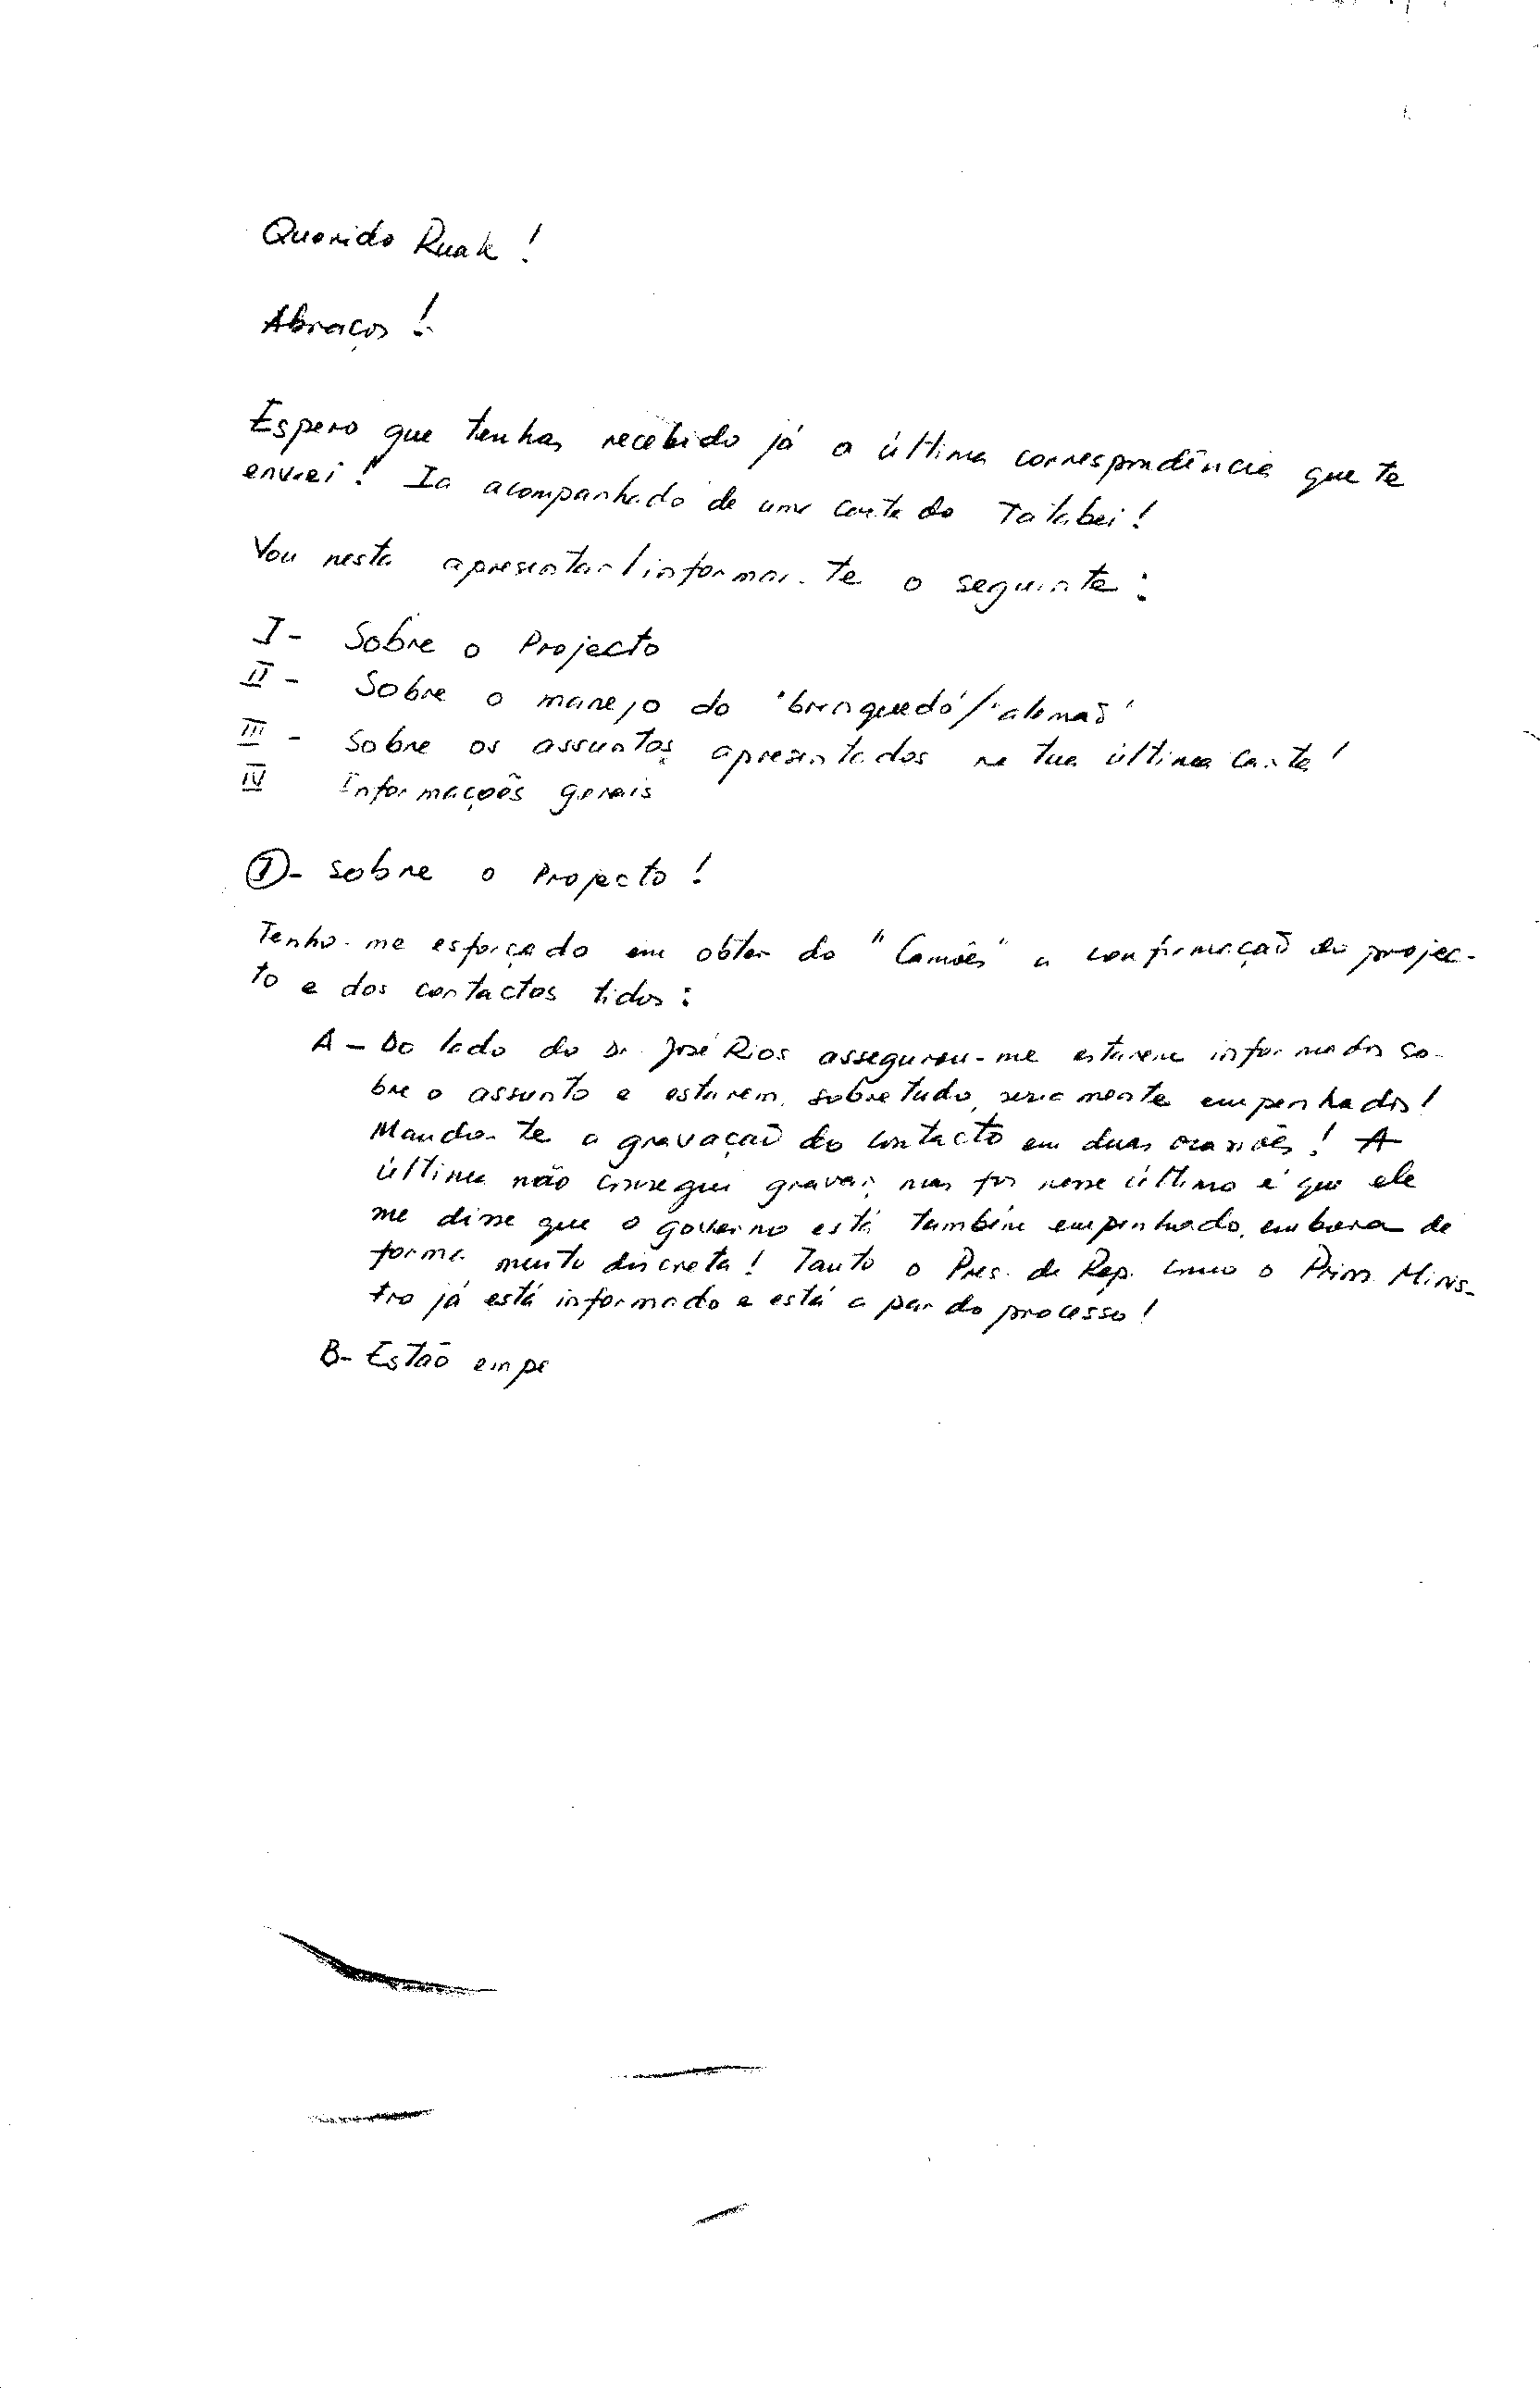 Querido Ruak!
Abraços!
Espero que tenhas recebido já a última correspondência que te
enviei! Ia acompanhado de uma carta do Tatabei!
Vou nesta apresentar/informar-te o seguinte:
I - Sobre o Projecto
II - Sobre o manejo do "brinquedo"/"alemão"
III - Sobre os assuntos apresentados na tua última carta!
IV Informações gerais
I - Sobre o Projecto!
Tenho-me esforçado em obter do "Camões" a confirmação do projec-
to e dos contactos tidos:
A - Do lado do Dr. José Rios assegurou-me estarem informados so-
bre o assunto e estarem, sobretudo, seriamente empenhados!
Mando-te a gravação do contacto em duas ocasiões! A
última não consegui gravar, mas foi nesse último é que ele
me disse que o governo está também empenhado, embora de
forma muito discreta! Tanto o Pres. da Rep. como o Prim. Minis-
tro já está informado e está a par do processo!
B- Estão empe